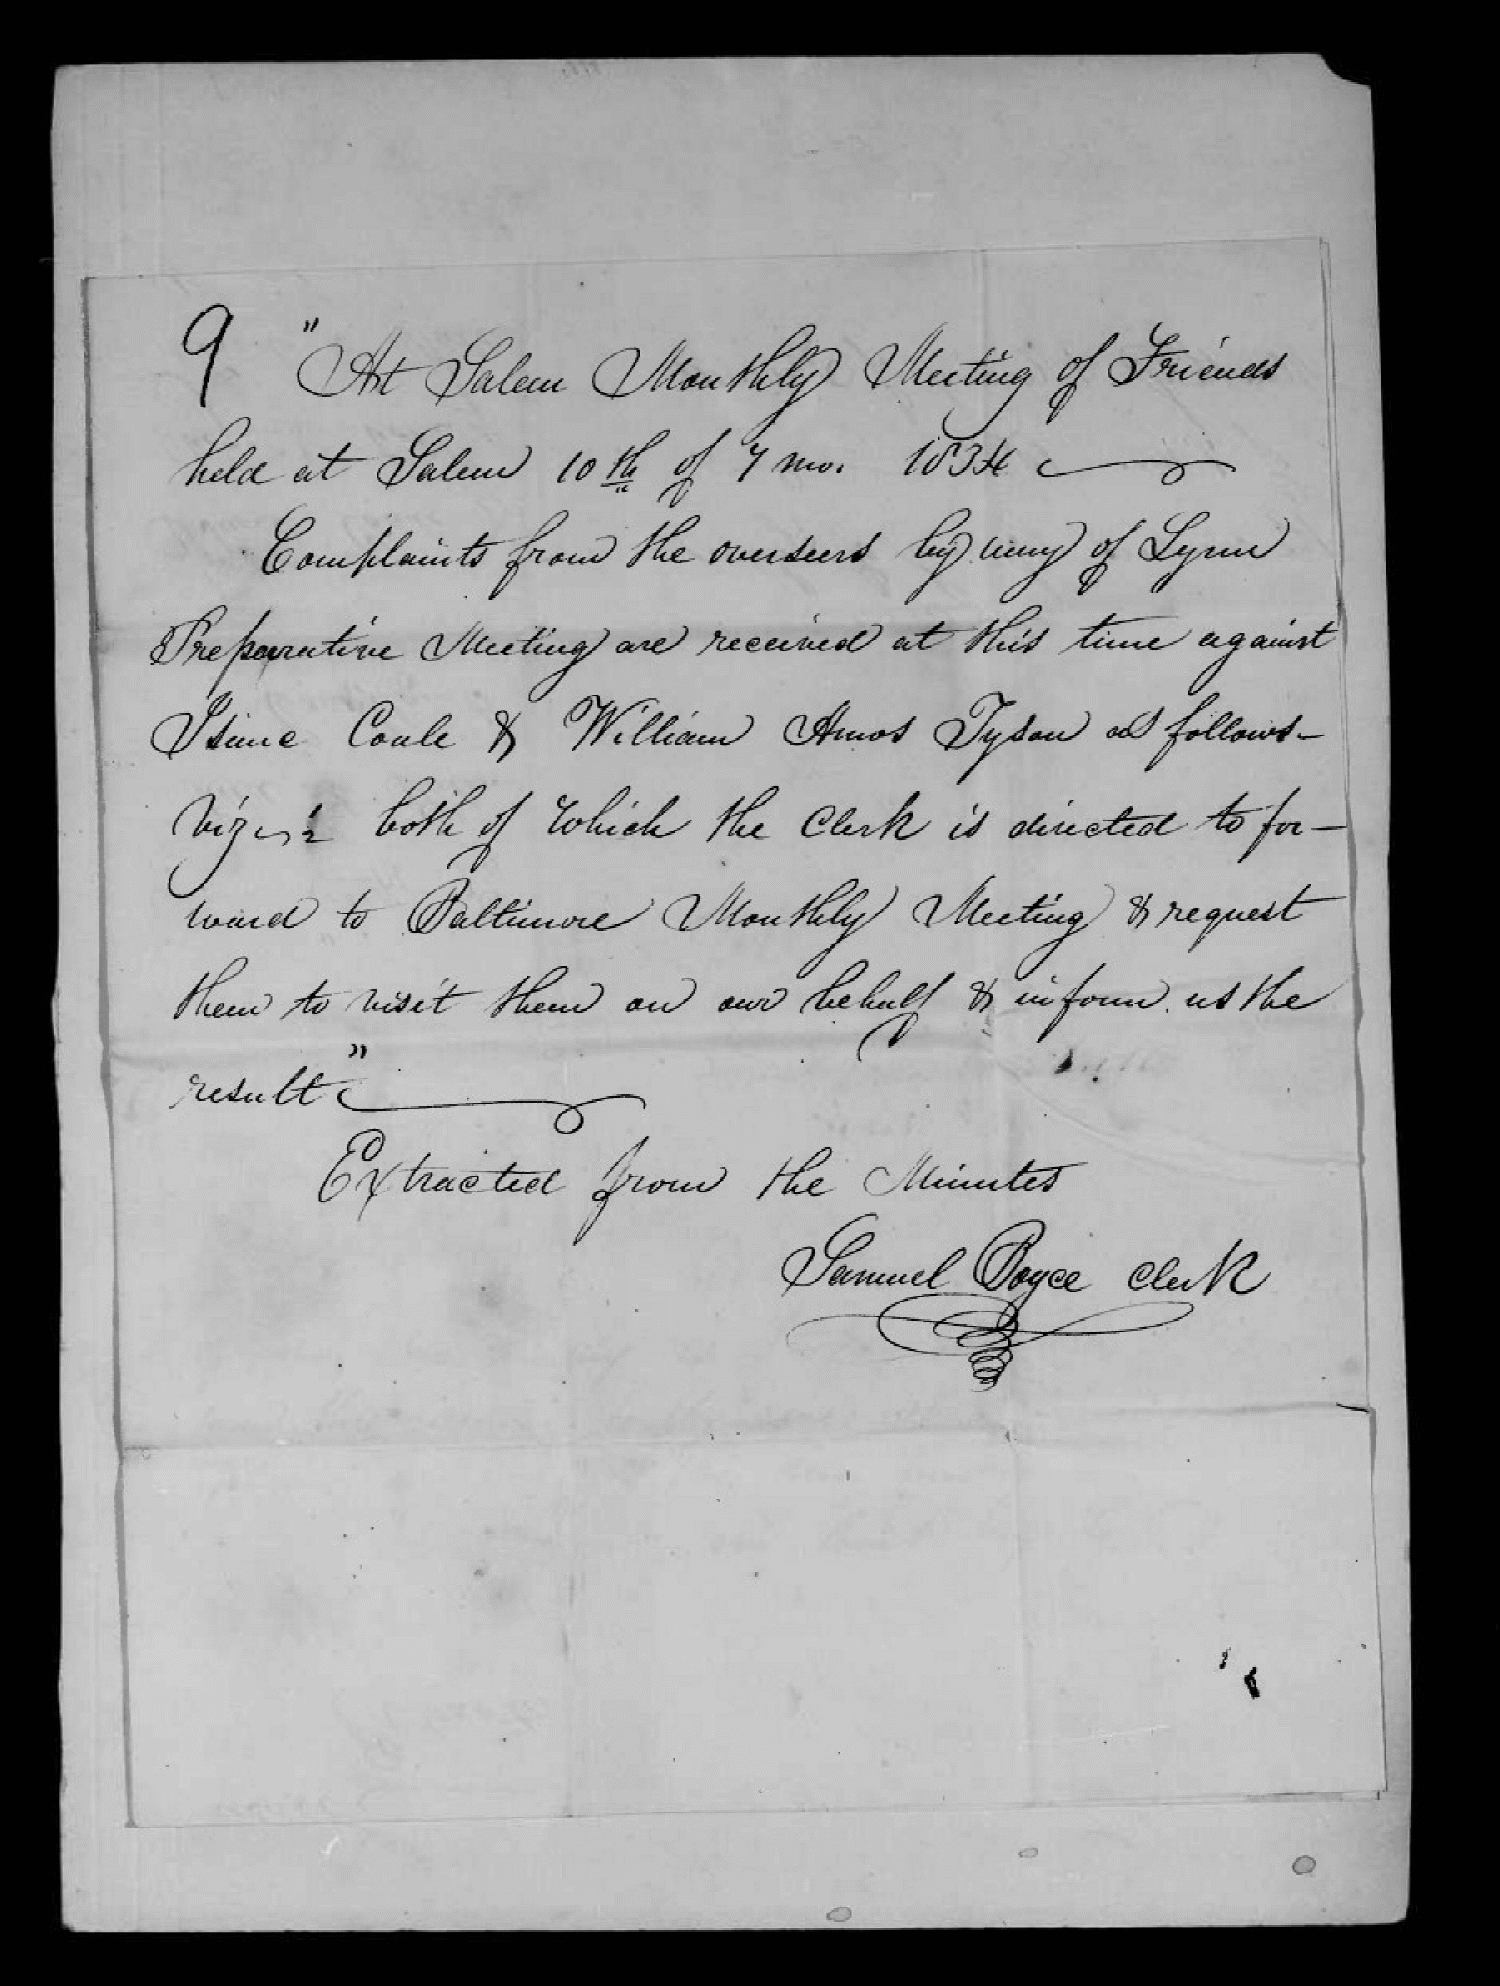 9 "At Salem Monthly Meeting of Friends
held at Salem 10th of 7 mo. 1834
Complaints from the overseers by way of Lynn
Preparative Meeting are received at this time against
Coale & William Amos Tyson as follows-
Viz both of which the Clerk is directed to for-
ward to Baltimore Monthly Meeting & request
them to visit them on our behalf & inform us the
result"
Extracted from the Minutes
Samuel Boyce Clerk